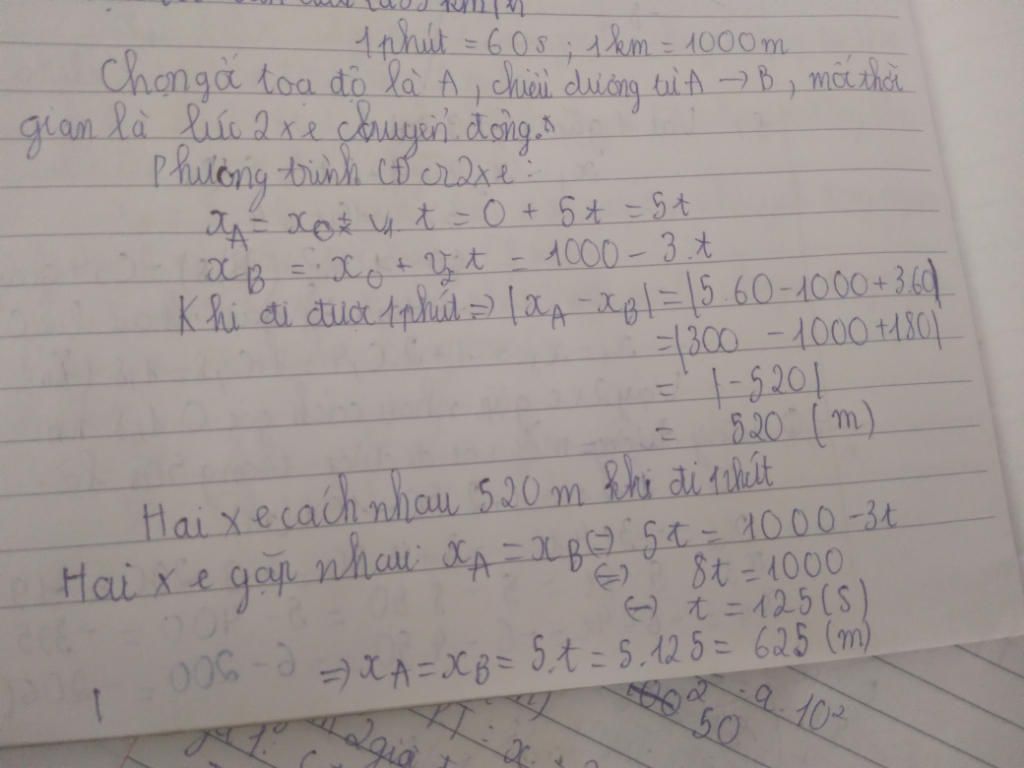 km/h
1 phút = 60s ; 1 km = 1000m
Chọn gố toa độ là A, chiều dương từ A → B, mốc thời
gian là lúc 2 xe chuyển động.
Phương trình CĐ cr 2 xe :
xA = x0 + v1 t = 0 + 5t = 5t
xB = x0 + v2 t = 1000 - 3.t
Khi đi được 1 phút ⇒ |xA - xB| = |5.60 - 1000 + 3.60|
= |300 - 1000 + 180|
= |-520|
= 520 (m)
Hai xe cách nhau 520 m khi đi 1 phút
Hai xe gặp nhau: xA = xB ⇔ 5t = 1000 - 3t
⇔ 8t = 1000
⇔ t = 125 (s)
⇒ xA = xB = 5.t = 5.125 = 625 (m)
50